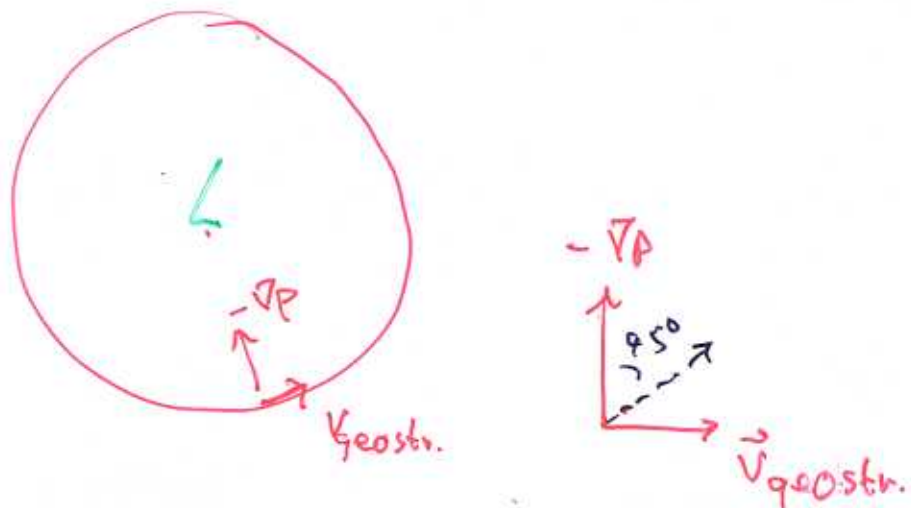 L
- ∇p
V geostr.
- ∇p
45°
V⃗ geostr.